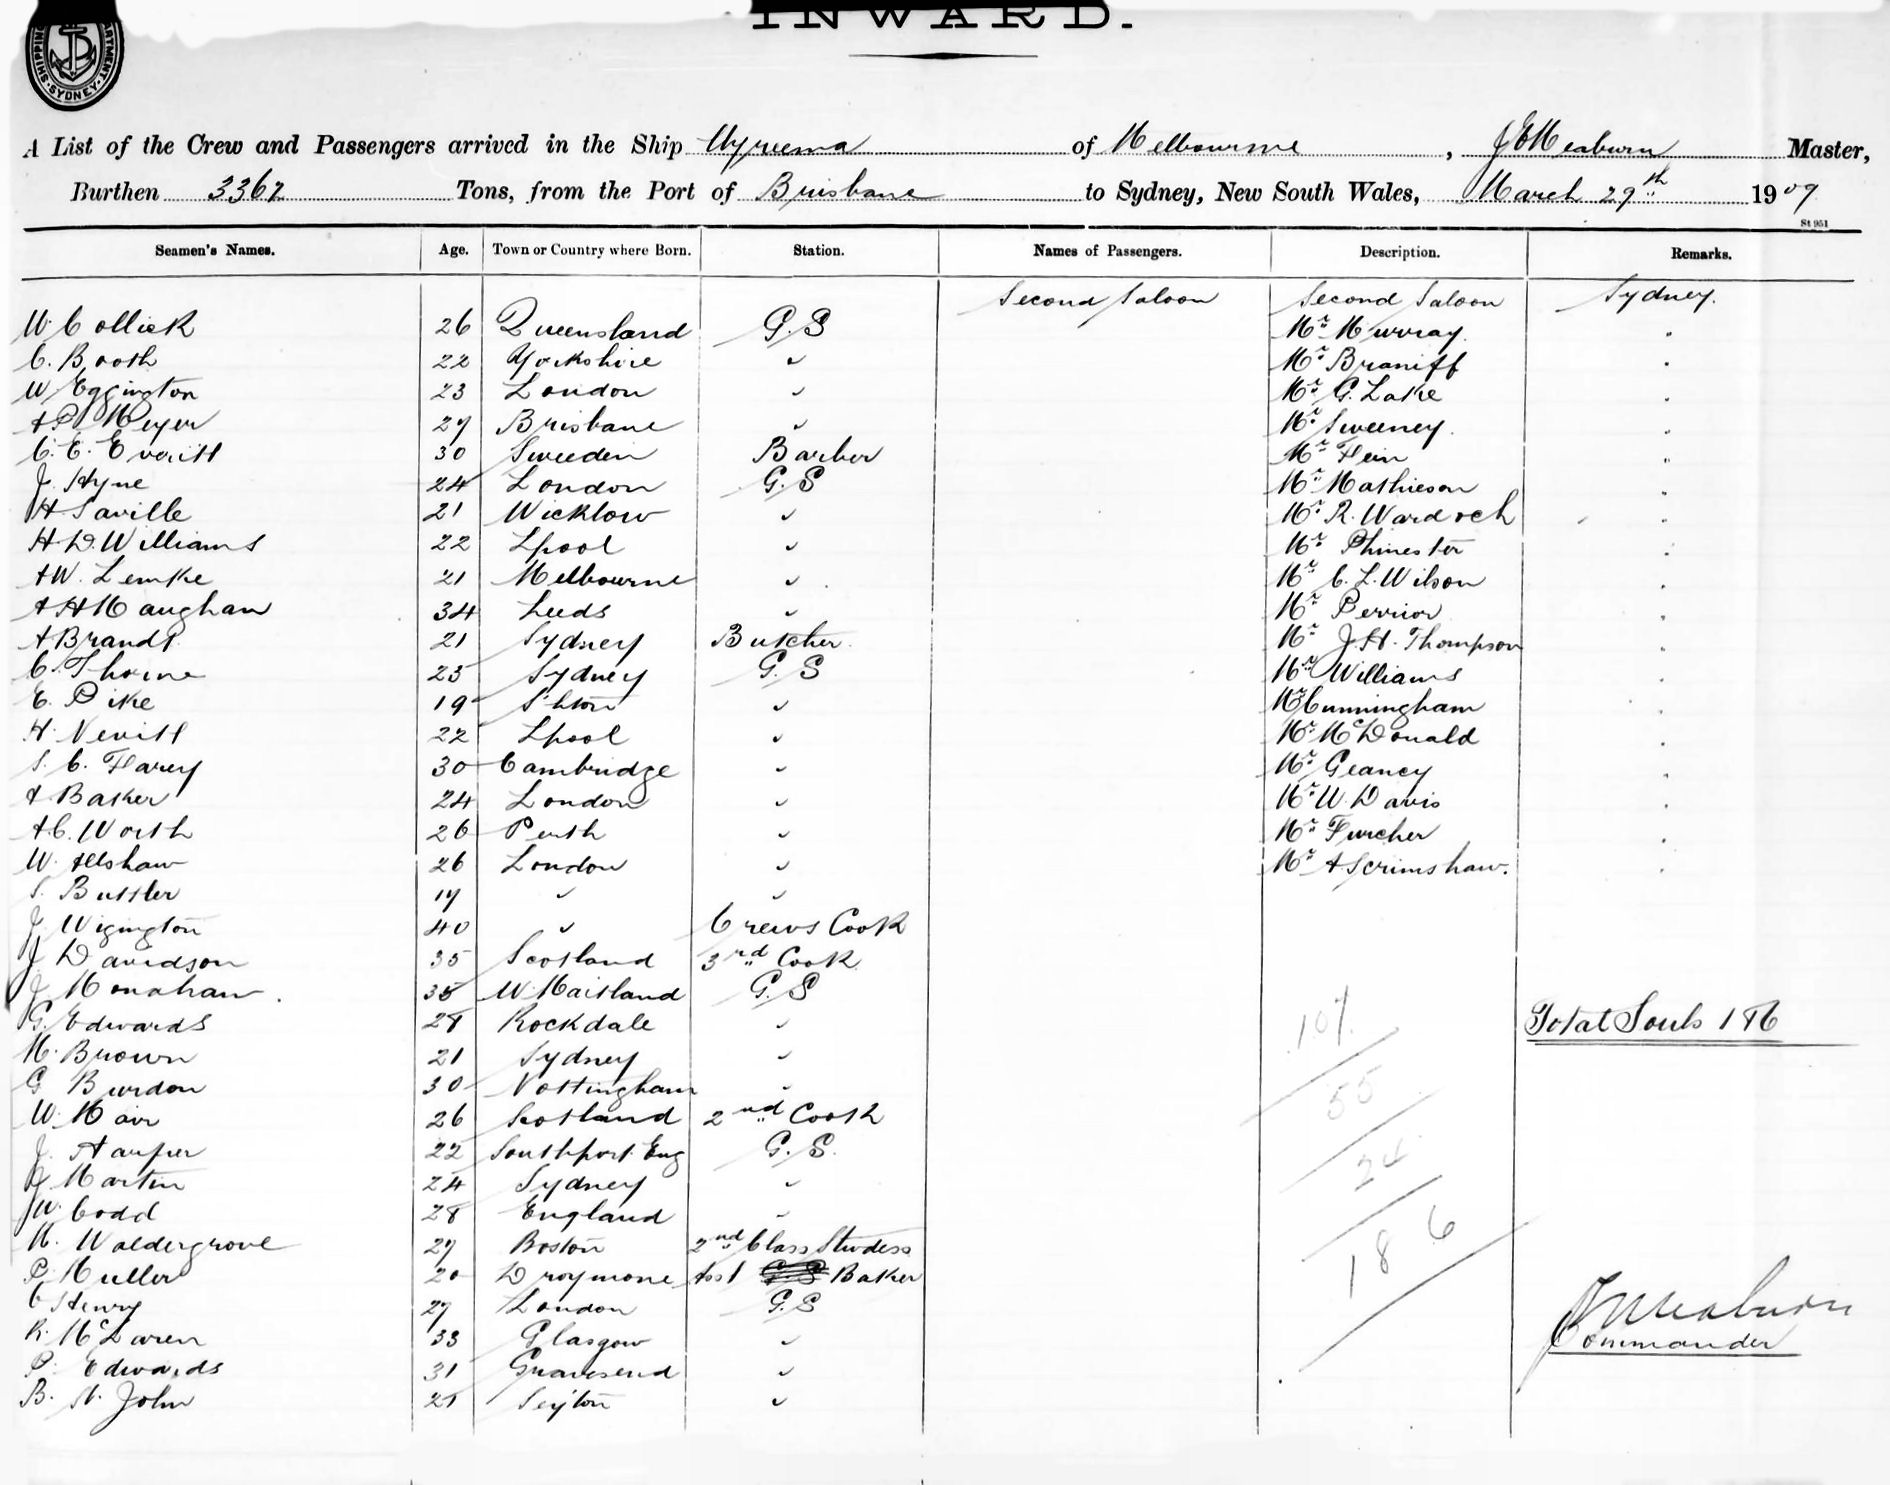 INWARD.
SHIPPING DEPARTMENT SYDNEY
A List of the Crew and Passengers arrived in the Ship Wyreema of Melbourne, J Meaburn Master,
Burthen 3362 Tons, from the Port of Brisbane to Sydney, New South Wales, March 29th 1909
St 951
Seamen's Names. Age. Town or Country where Born. Station. Names of Passengers. Description. Remarks.
Second Saloon Second Saloon Sydney.
W. Collick 26 Queensland G.S Mr Murray "
C. Booth 22 Yorkshire " Mr Braniff "
W Eggington 23 London " Mr G. Lake "
A P Meyer 27 Brisbane " Mr Sweeney. "
C. E. Everitt 30 Sweeden Barber Mr Fein "
J. Hyne 24 London G.S Mr Mathieson "
H Saville 21 Wicklow " Mr R. Wardroch "
H D. Williams 22 Lpool " Mr Phinester "
A W. Lemke 21 Melbourne " Mr C. L. Wilson "
A H Maughan 34 Leeds " Mr Perrior "
A Brandt 21 Sydney Butcher. Mr J. H. Thompson "
C. Thorne 25 Sydney G. S Mr Williams "
E. Pike 19 S'hton " Mr Cunningham "
H. Nevill 22 Lpool " Mr McDonald "
S. C. Farey 30 Cambridge " Mr Geaney "
A Baker 24 London " Mr W. Davis "
A C. Worth 26 Perth " Mr Furcher "
W. Allshaw 26 London " Mr A Scrimshaw. "
S. Buttler 17 " "
J. Wigington 40 " Crews Cook
J Davidson 35 Scotland 3rd Cook
J Monahan 35 W. Maitland G. S
G. Edwards 28 Rockdale " 107 Total Souls 186
M. Brown 21 Sydney "
G Burdon 30 Nottingham " 55
W. Mair 26 Scotland 2nd Cook
J. Harper 22 Southport Eng G. S. 24
J Martin 24 Sydney "
W. Codd 28 England " 186
M. Waldergrove 27 Boston 2nd Class Stwdess
P. Muller 20 Droymone Asst G S Baker J Meaburn
C Henry 27 London G. S
R. McLaren 33 Glasgow " Commander
P. Edwards 31 Gravesend "
B. St. John 21 "